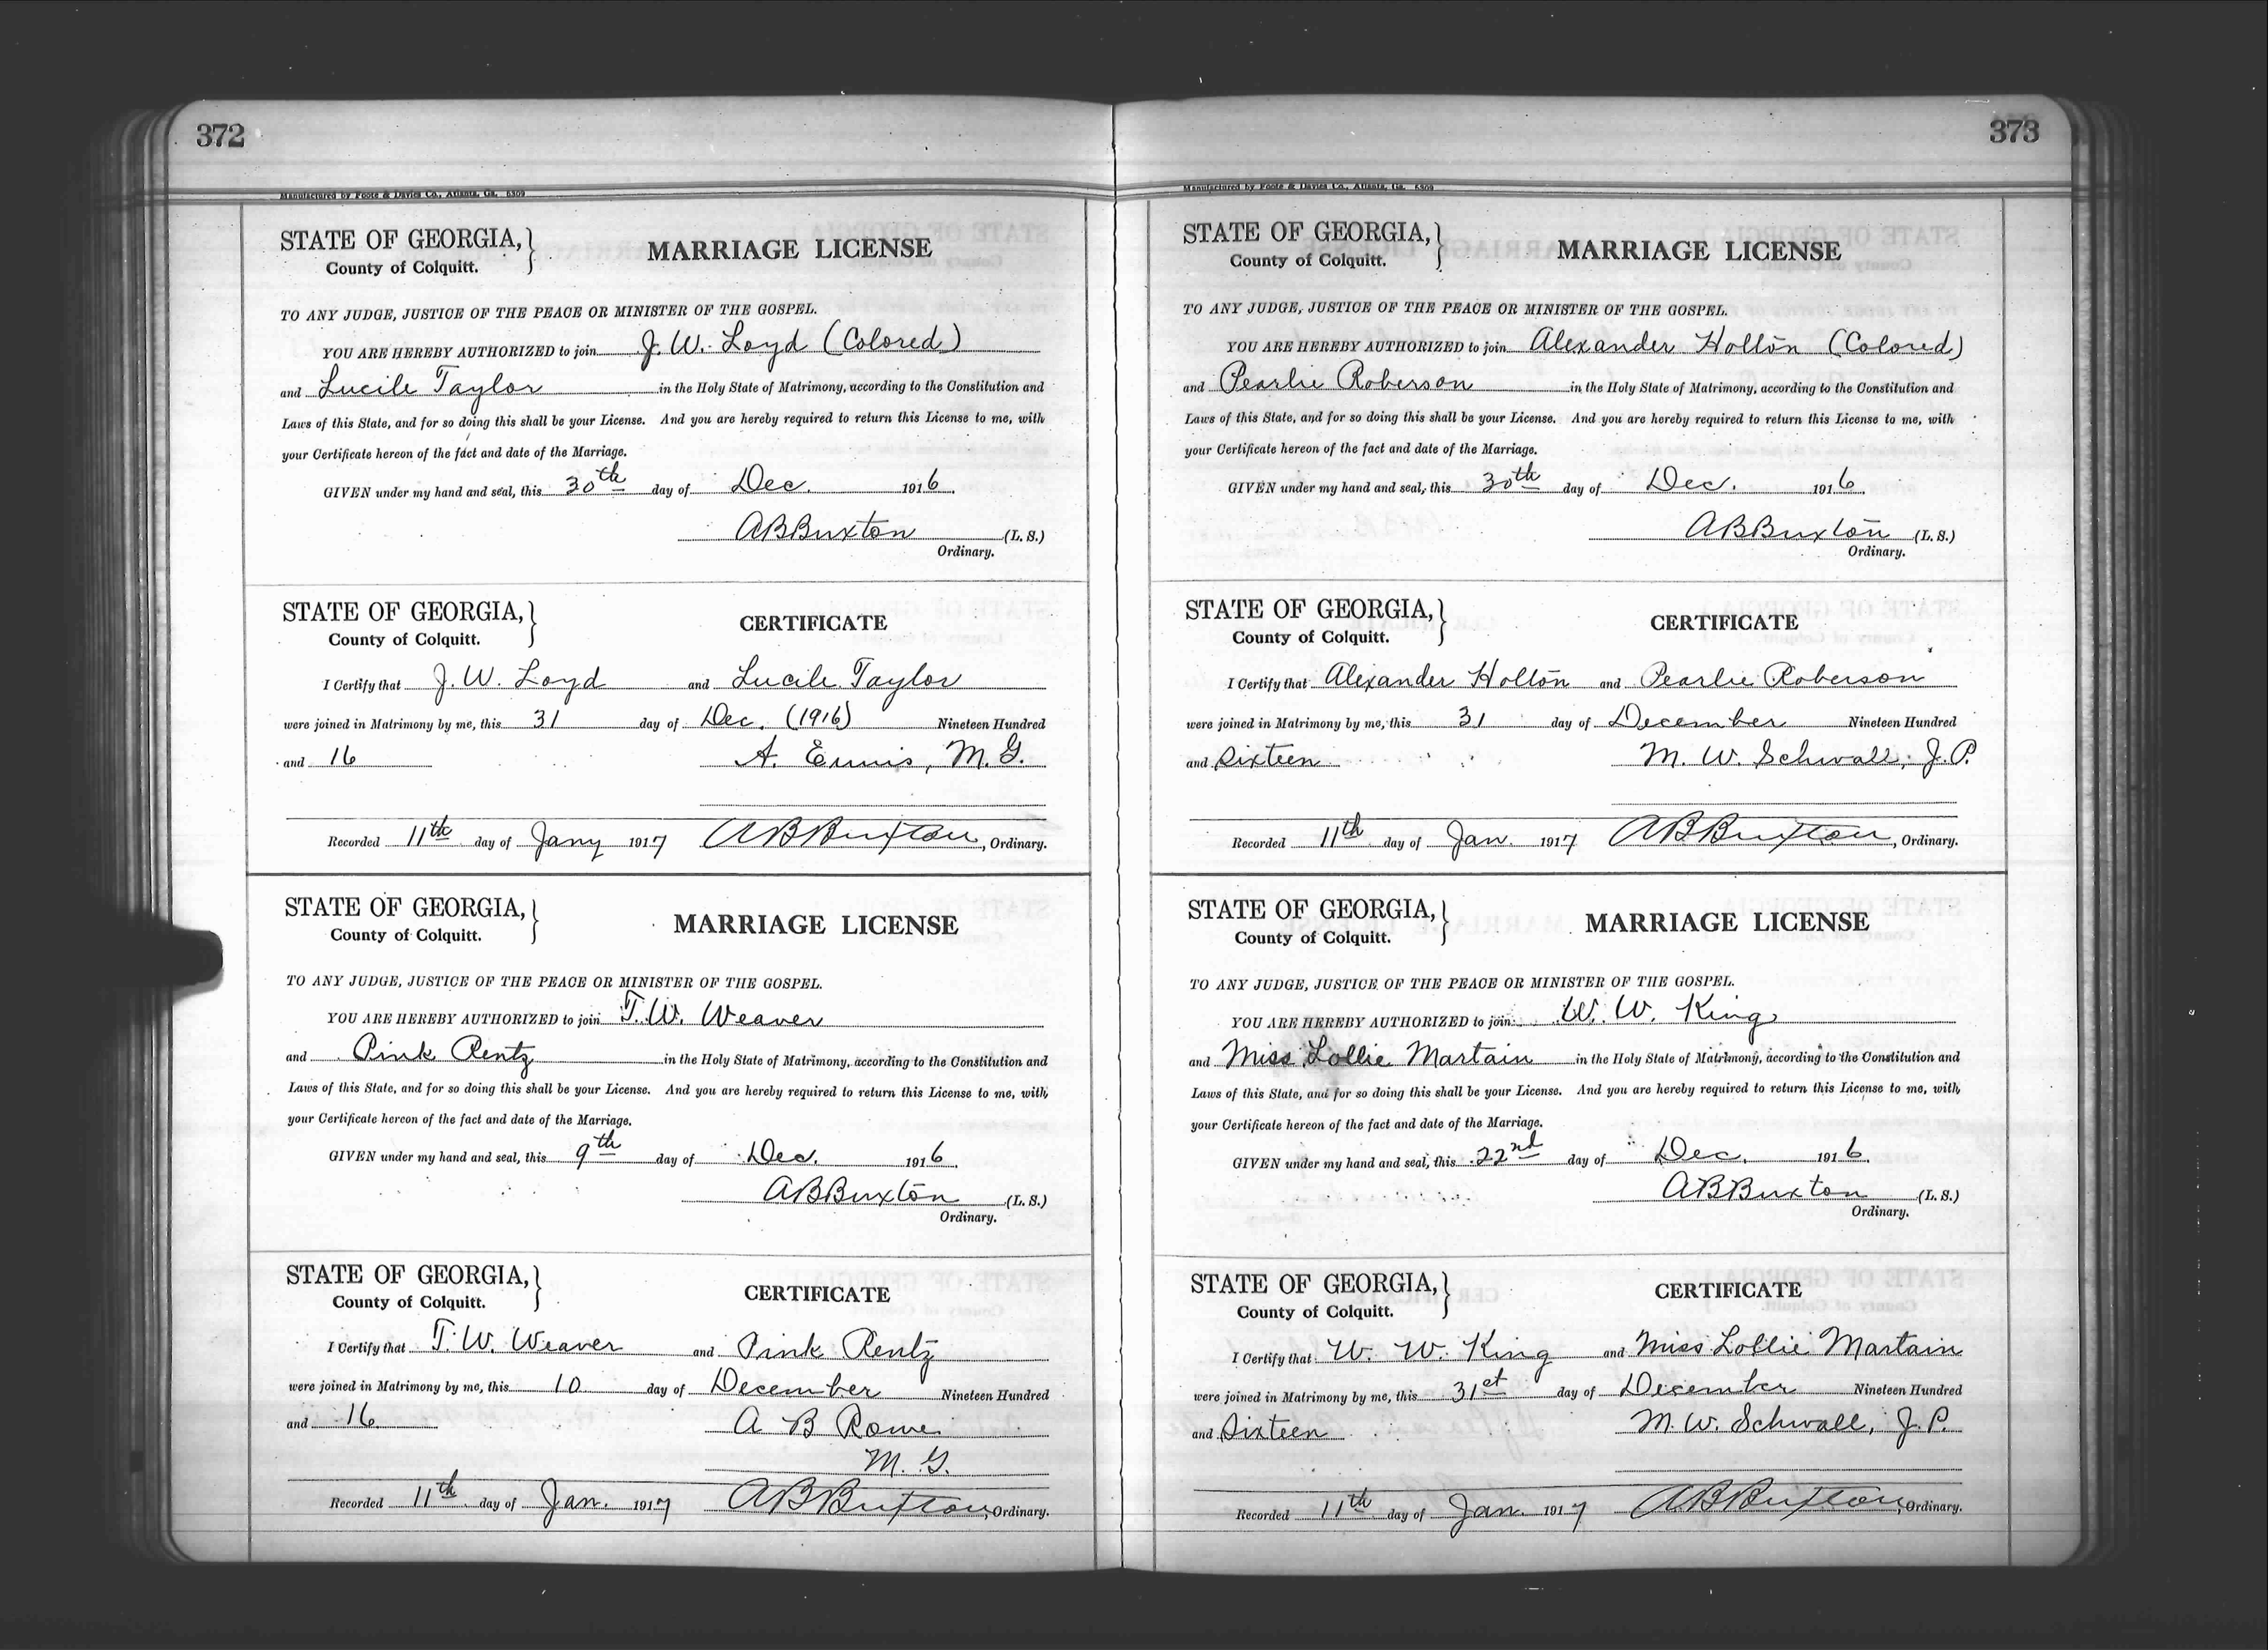 372
Manufactured by Foote & Davies Co., Atlanta, Ga. 6309
STATE OF GEORGIA,
County of Colquitt.
MARRIAGE LICENSE
TO ANY JUDGE, JUSTICE OF THE PEACE OR MINISTER OF THE GOSPEL.
YOU ARE HEREBY AUTHORIZED to join J. W. Loyd (Colored)
and Lucile Taylor in the Holy State of Matrimony, according to the Constitution and
Laws of this State, and for so doing this shall be your License. And you are hereby required to return this License to me, with
your Certificate hereon of the fact and date of the Marriage.
GIVEN under my hand and seal, this 30th day of Dec. 1916.
A B Buxton (L. S.)
Ordinary.
STATE OF GEORGIA,
County of Colquitt.
CERTIFICATE
I Certify that J. W. Loyd and Lucile Taylor
were joined in Matrimony by me, this 31 day of Dec. (1916) Nineteen Hundred
and 16
A. Ennis, M. G.
Recorded 11th day of Jany 1917 A B Buxton, Ordinary.
STATE OF GEORGIA,
County of Colquitt.
MARRIAGE LICENSE
TO ANY JUDGE, JUSTICE OF THE PEACE OR MINISTER OF THE GOSPEL.
YOU ARE HEREBY AUTHORIZED to join T. W. Weaver
and Pink Rentz in the Holy State of Matrimony, according to the Constitution and
Laws of this State, and for so doing this shall be your License. And you are hereby required to return this License to me, with
your Certificate hereon of the fact and date of the Marriage.
GIVEN under my hand and seal, this 9th day of Dec. 1916.
A B Buxton (L. S.)
Ordinary.
STATE OF GEORGIA,
County of Colquitt.
CERTIFICATE
I Certify that T. W. Weaver and Pink Rentz
were joined in Matrimony by me, this 10 day of December Nineteen Hundred
and 16
A B Rowe
M. G.
Recorded 11th day of Jan. 1917 A B Buxton, Ordinary.
373
Manufactured by Foote & Davies Co., Atlanta, Ga. 6309
STATE OF GEORGIA,
County of Colquitt.
MARRIAGE LICENSE
TO ANY JUDGE, JUSTICE OF THE PEACE OR MINISTER OF THE GOSPEL.
YOU ARE HEREBY AUTHORIZED to join Alexander Holton (Colored)
and Pearlie Roberson in the Holy State of Matrimony, according to the Constitution and
Laws of this State, and for so doing this shall be your License. And you are hereby required to return this License to me, with
your Certificate hereon of the fact and date of the Marriage.
GIVEN under my hand and seal, this 30th day of Dec. 1916.
A B Buxton (L. S.)
Ordinary.
STATE OF GEORGIA,
County of Colquitt.
CERTIFICATE
I Certify that Alexander Holton and Pearlie Roberson
were joined in Matrimony by me, this 31 day of December Nineteen Hundred
and Sixteen
M. W. Schwall, J. P.
Recorded 11th day of Jan. 1917 A B Buxton, Ordinary.
STATE OF GEORGIA,
County of Colquitt.
MARRIAGE LICENSE
TO ANY JUDGE, JUSTICE OF THE PEACE OR MINISTER OF THE GOSPEL.
YOU ARE HEREBY AUTHORIZED to join W. W. King
and Miss Lollie Martain in the Holy State of Matrimony, according to the Constitution and
Laws of this State, and for so doing this shall be your License. And you are hereby required to return this License to me, with
your Certificate hereon of the fact and date of the Marriage.
GIVEN under my hand and seal, this 22nd day of Dec. 1916.
A B Buxton (L. S.)
Ordinary.
STATE OF GEORGIA,
County of Colquitt.
CERTIFICATE
I Certify that W. W. King and Miss Lollie Martain
were joined in Matrimony by me, this 31st day of December Nineteen Hundred
and Sixteen
M. W. Schwall, J. P.
Recorded 11th day of Jan. 1917 A B Buxton, Ordinary.